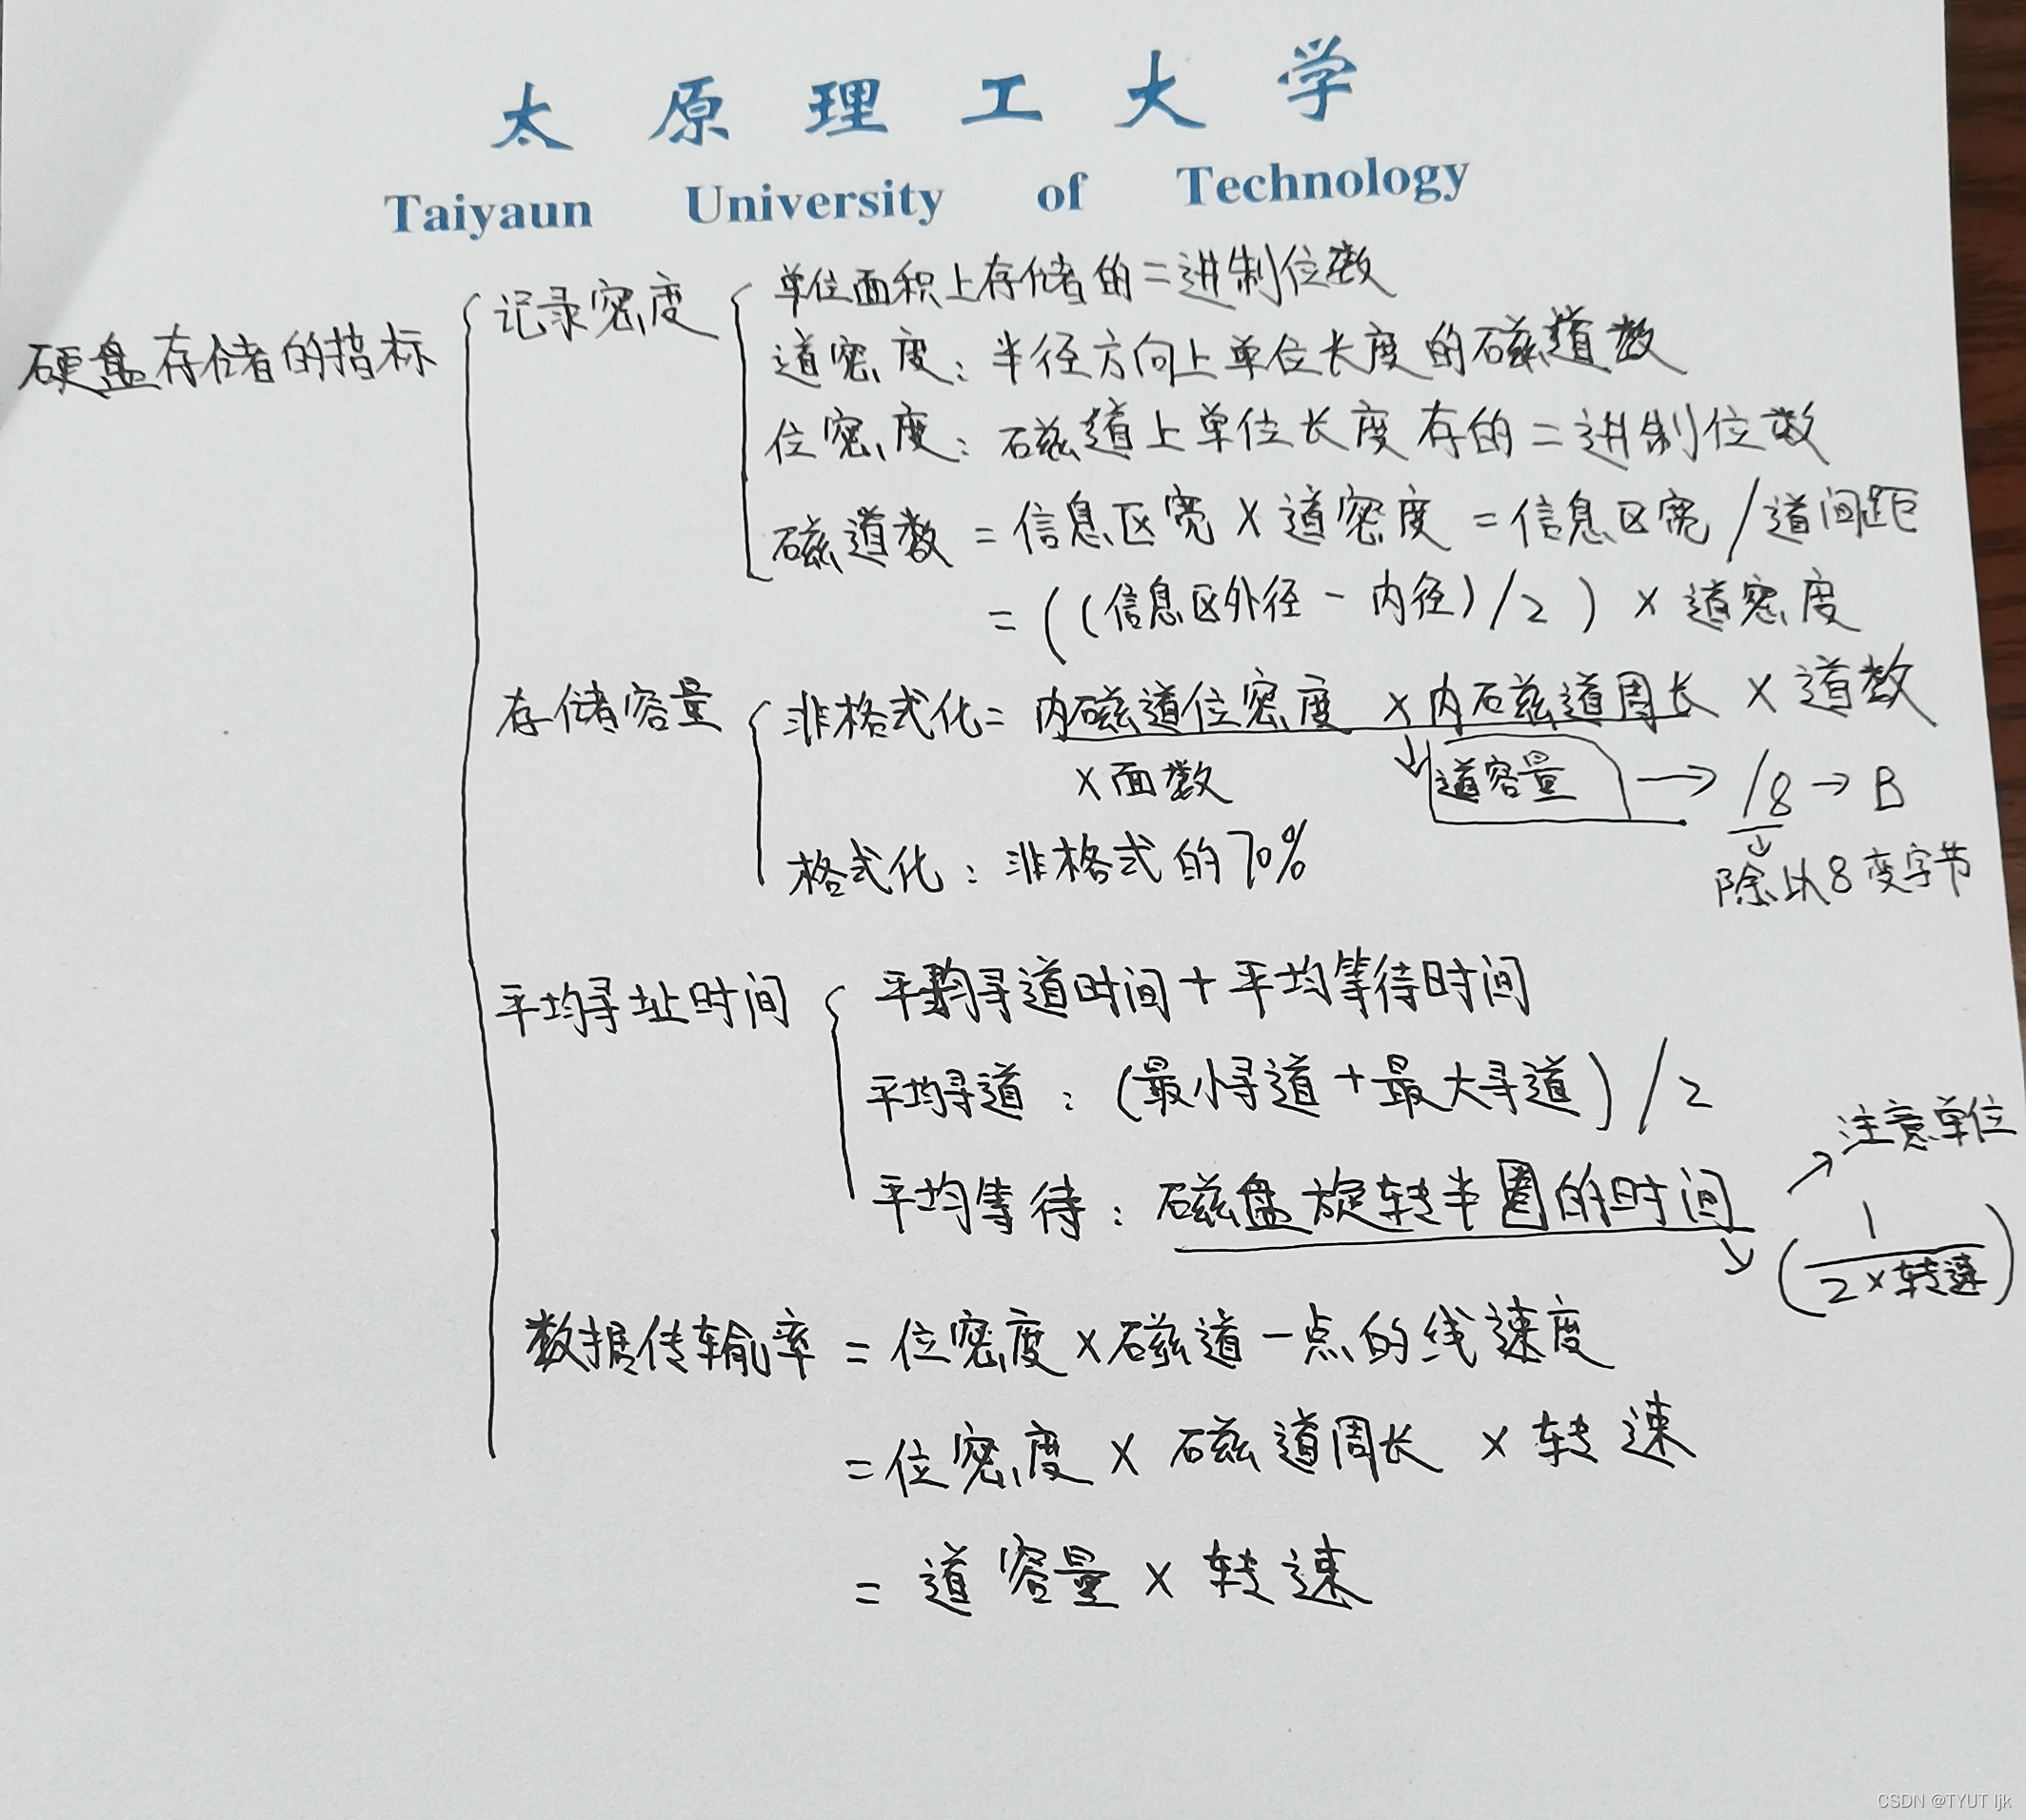 太原理工大学
Taiyaun University of Technology
硬盘存储的指标
记录密度
单位面积上存储的二进制位数
道密度：半径方向上单位长度的磁道数
位密度：磁道上单位长度存的二进制位数
磁道数 = 信息区宽 × 道密度 = 信息区宽 / 道间距
= ( (信息区外径 - 内径) / 2 ) × 道密度
存储容量
非格式化 = 内磁道位密度 × 内磁道周长 × 道数
× 面数
↓ 道容量 → /8 → B
↓
除以8变字节
格式化：非格式的70%
平均寻址时间
平均寻道时间 + 平均等待时间
平均寻道：(最小寻道 + 最大寻道) / 2
平均等待：磁盘旋转半圈的时间
↗ 注意单位
↘ ( 1 / 2×转速 )
数据传输率 = 位密度 × 磁道一点的线速度
= 位密度 × 磁道周长 × 转速
= 道容量 × 转速
CSDN @TYUT ljk